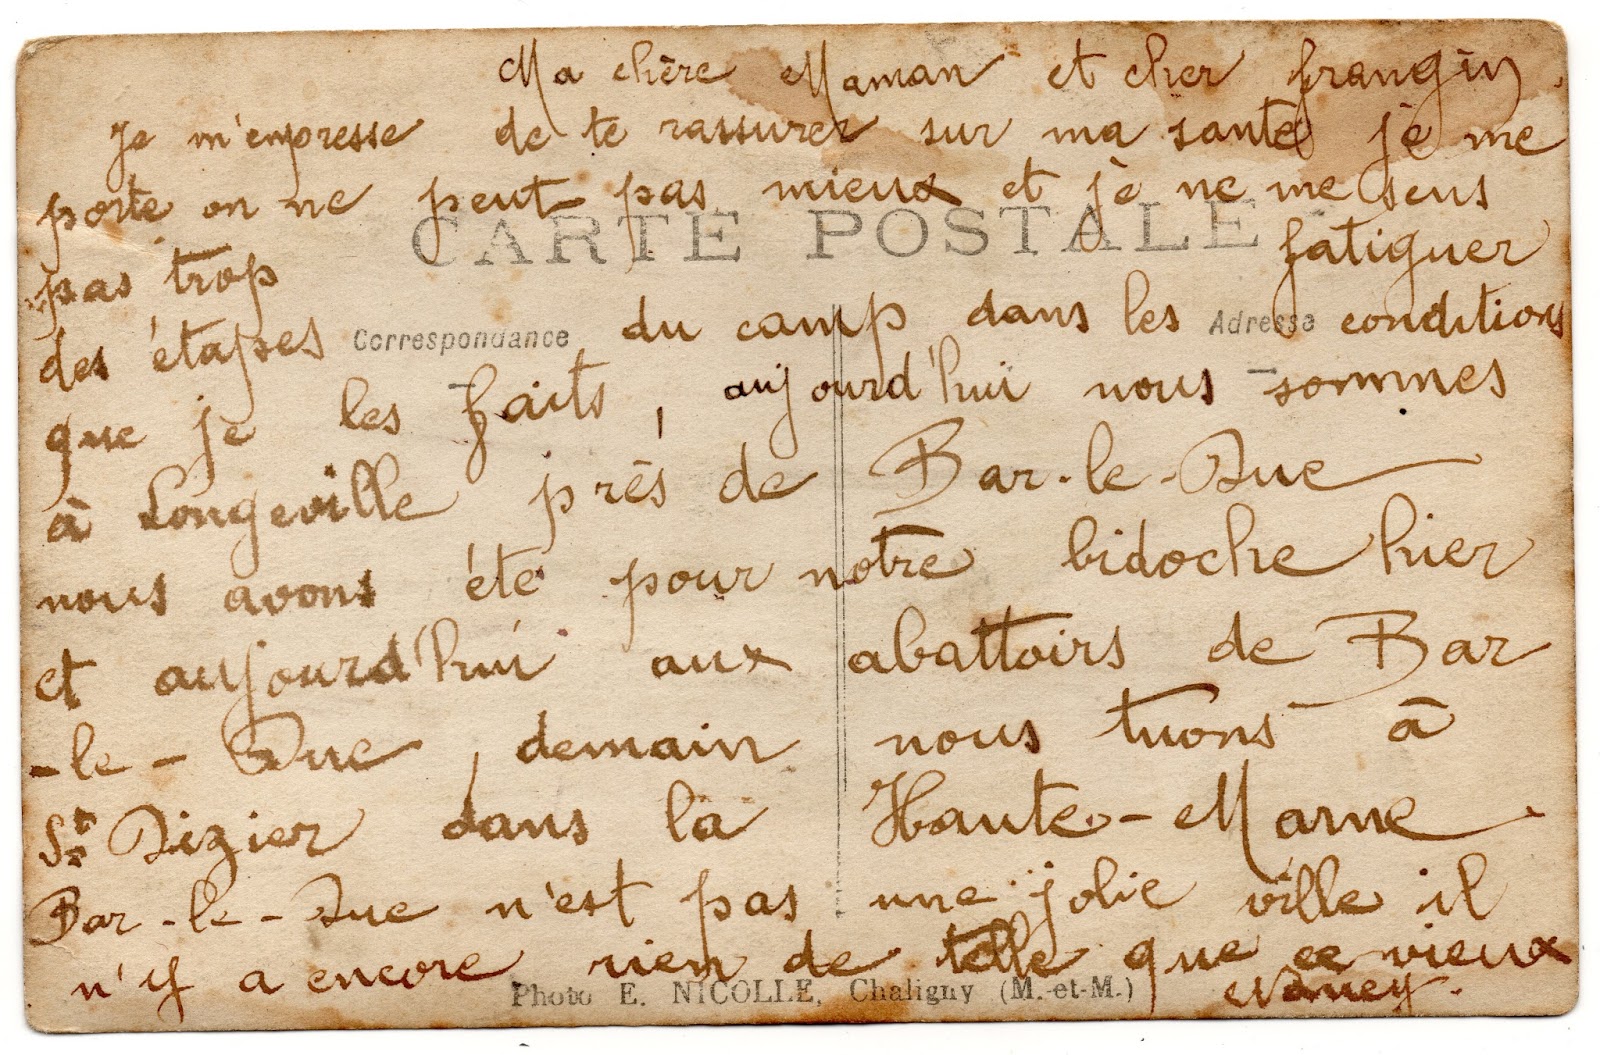 Ma chère Maman et cher frangin.
Je m'empresse de te rassurer sur ma santé je me
porte on ne peut pas mieux et je ne me sens
CARTE POSTALE
pas trop fatiguer
des étapes du camp dans les conditions
Correspondance Adresse
que je les faits, aujourd'hui nous sommes
à Longeville près de Bar-le-Duc
nous avons été pour notre bidoche hier
et aujourd'hui aux abattoirs de Bar
-le-Duc, demain nous tuons à
St Dizier dans la Haute-Marne.
Bar-le-Duc n'est pas une jolie ville il
n'y a encore rien de telle que ce vieux
Nancy.
Photo E. NICOLLE, Chaligny (M.-et-M.)